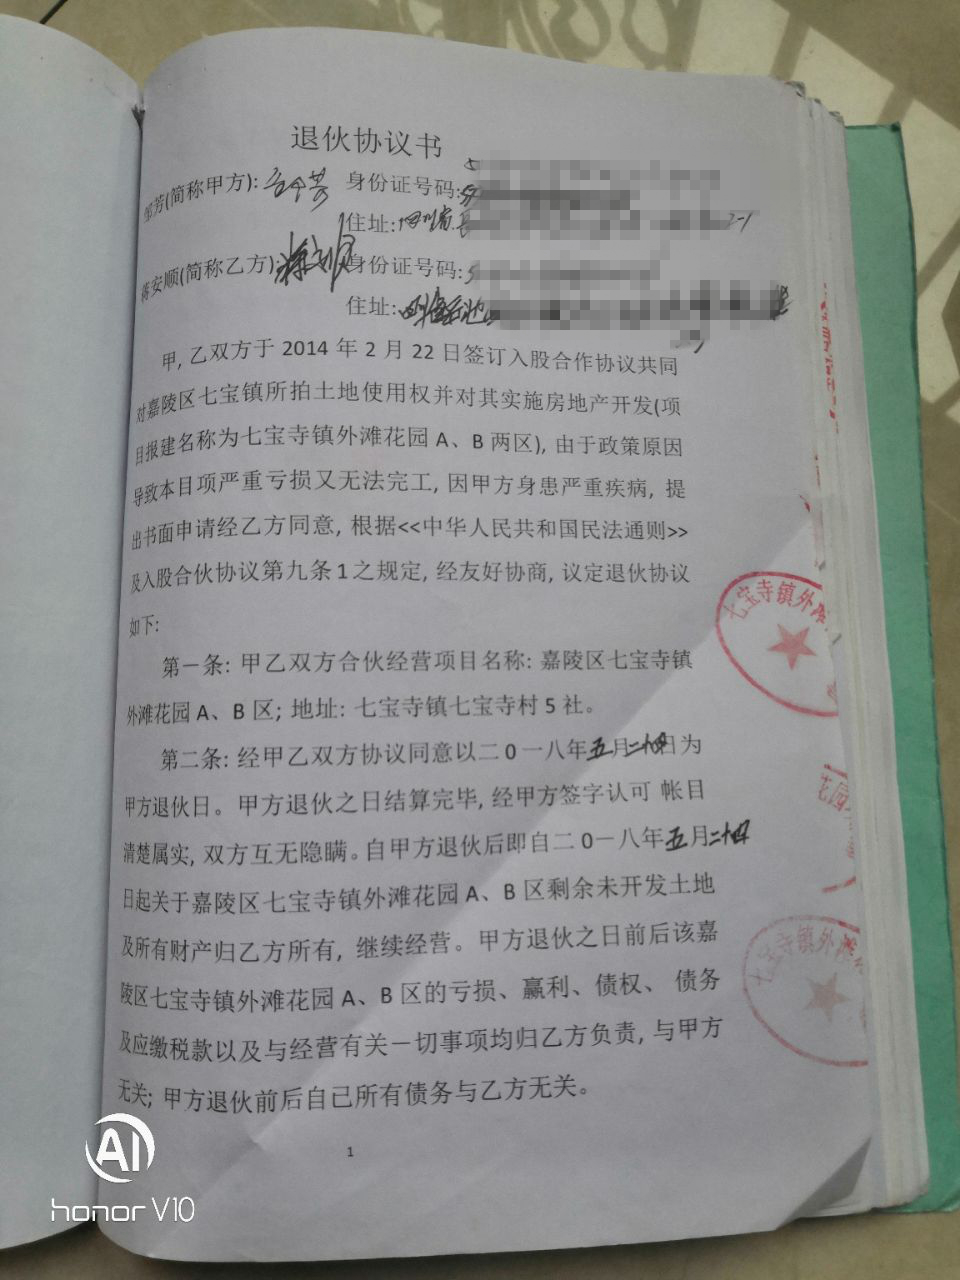 退伙协议书
邹芳(简称甲方): 身份证号码:
住址: 四川省
蒋安顺(简称乙方): 身份证号码:
住址:
甲, 乙双方于 2014 年 2 月 22 日签订入股合作协议共同
对嘉陵区七宝镇所拍土地使用权并对其实施房地产开发(项
目报建名称为七宝寺镇外滩花园 A、B 两区), 由于政策原因
导致本目项严重亏损又无法完工, 因甲方身患严重疾病, 提
出书面申请经乙方同意, 根据<<中华人民共和国民法通则>>
及入股合伙协议第九条 1 之规定, 经友好协商, 议定退伙协议
如下:
第一条: 甲乙双方合伙经营项目名称: 嘉陵区七宝寺镇
外滩花园 A、B 区; 地址: 七宝寺镇七宝寺村 5 社。
第二条: 经甲乙双方协议同意以二0一八年五月二十四日为
甲方退伙日。甲方退伙之日结算完毕, 经甲方签字认可 帐目
清楚属实, 双方互无隐瞒。自甲方退伙后即自二0一八年五月二十四
日起关于嘉陵区七宝寺镇外滩花园 A、B 区剩余未开发土地
及所有财产归乙方所有, 继续经营。甲方退伙之日前后该嘉
陵区七宝寺镇外滩花园 A、B 区的亏损、赢利、债权、 债务
及应缴税款以及与经营有关一切事项均归乙方负责, 与甲方
无关; 甲方退伙前后自己所有债务与乙方无关。
1
七宝寺镇外滩
花园
七宝寺镇外滩
AI
honor V10